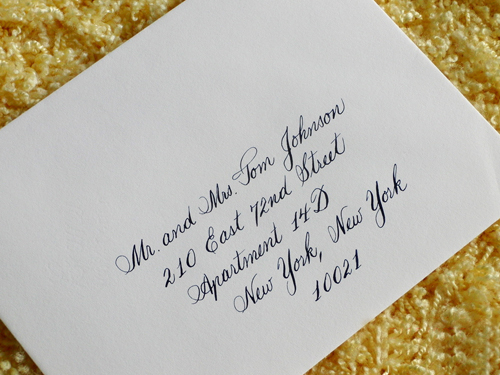 Mr. and Mrs. Tom Johnson
210 East 72nd Street
Apartment 14D
New York, New York
10021